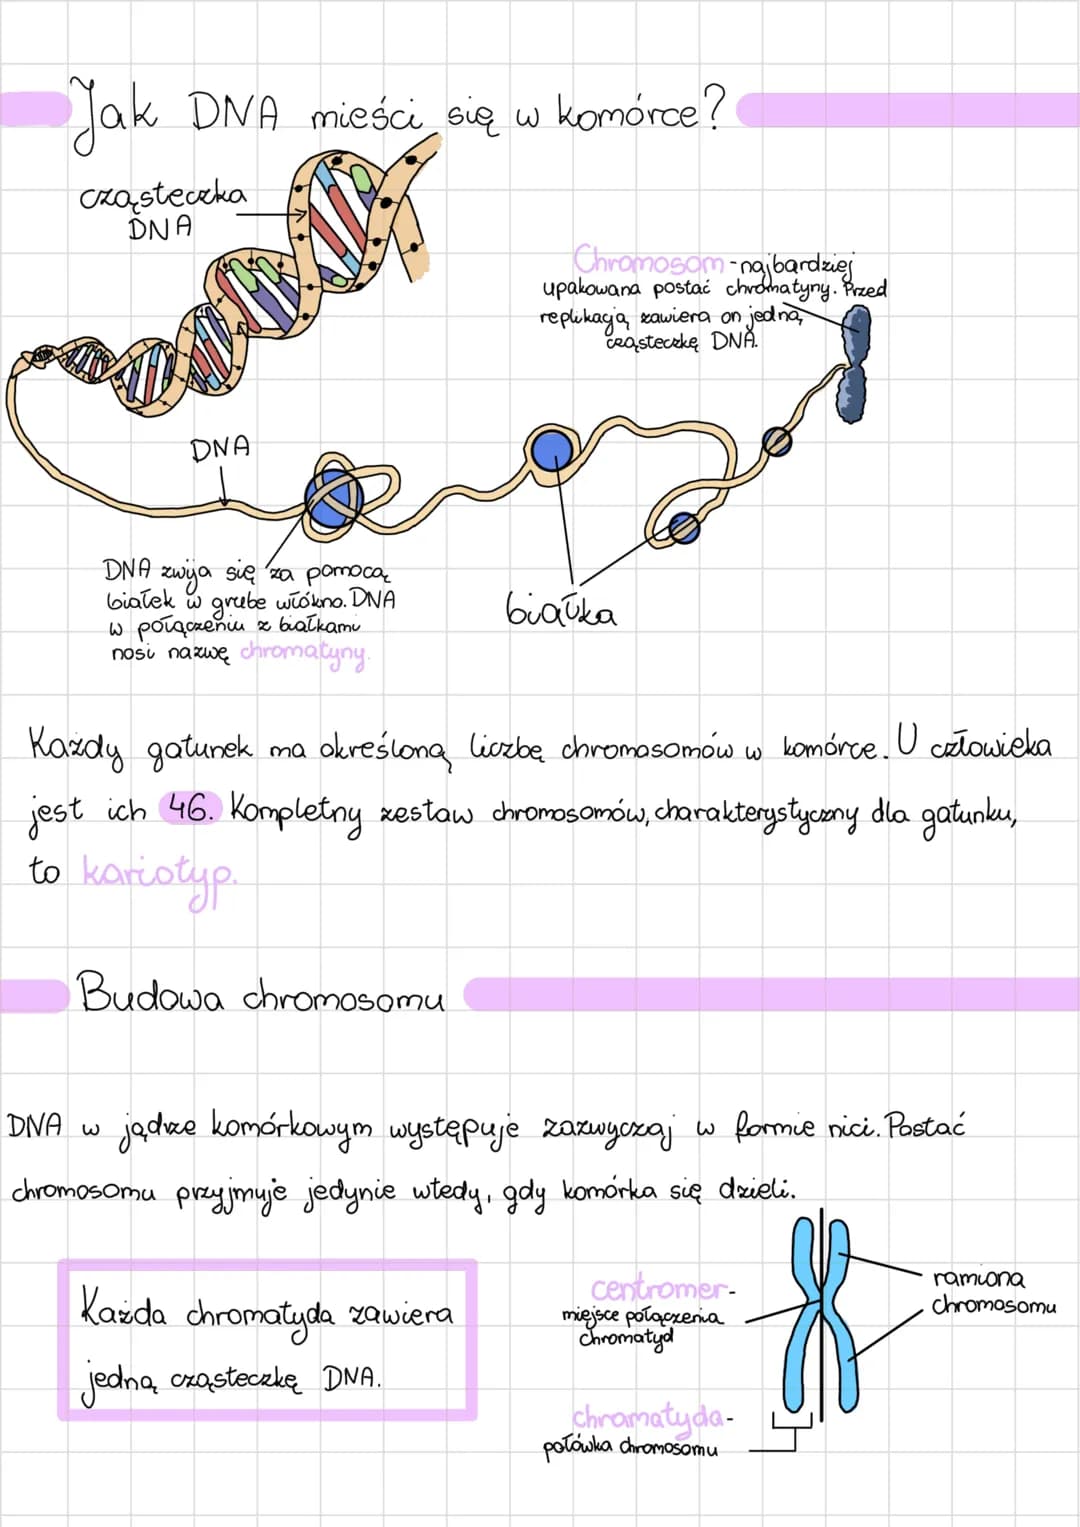 Jak DNA mieści się w komórce?
cząsteczka
DNA
Chromosom - najbardziej
upakowana postać chromatyny. Przed
replikacją zawiera on jedną
cząsteczkę DNA.
DNA
DNA zwija się za pomocą
białek w grube włókno. DNA
w połączeniu z białkami
nosi nazwę chromatyny.
białka
Każdy gatunek ma określoną liczbę chromosomów w komórce. U człowieka
jest ich 46. Kompletny zestaw chromosomów, charakterystyczny dla gatunku,
to kariotyp.
Budowa chromosomu
DNA w jądrze komórkowym występuje zazwyczaj w formie nici. Postać
chromosomu przyjmuje jedynie wtedy, gdy komórka się dzieli.
Każda chromatyda zawiera
jedną cząsteczkę DNA.
centromer-
miejsce połączenia
chromatyd
ramiona
chromosomu
chromatyda-
połówka chromosomu